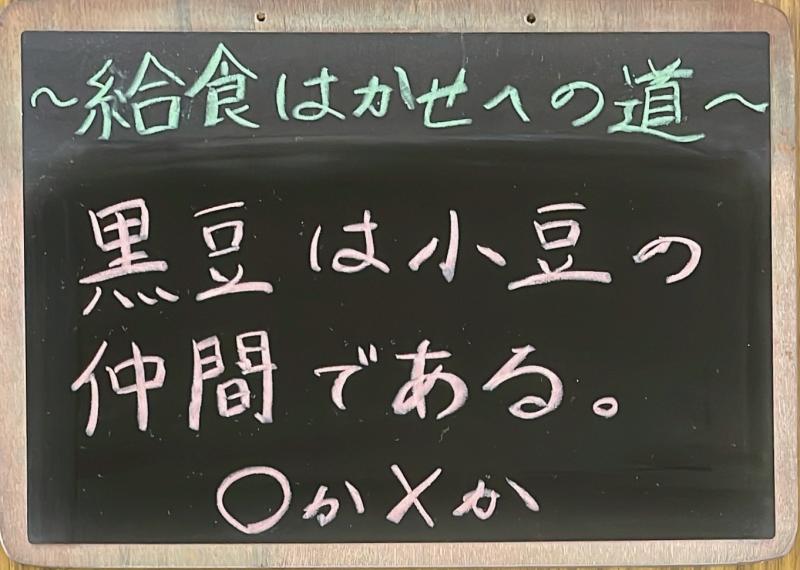 ～給食はかせへの道～
黒豆は小豆の
仲間である。
〇か×か